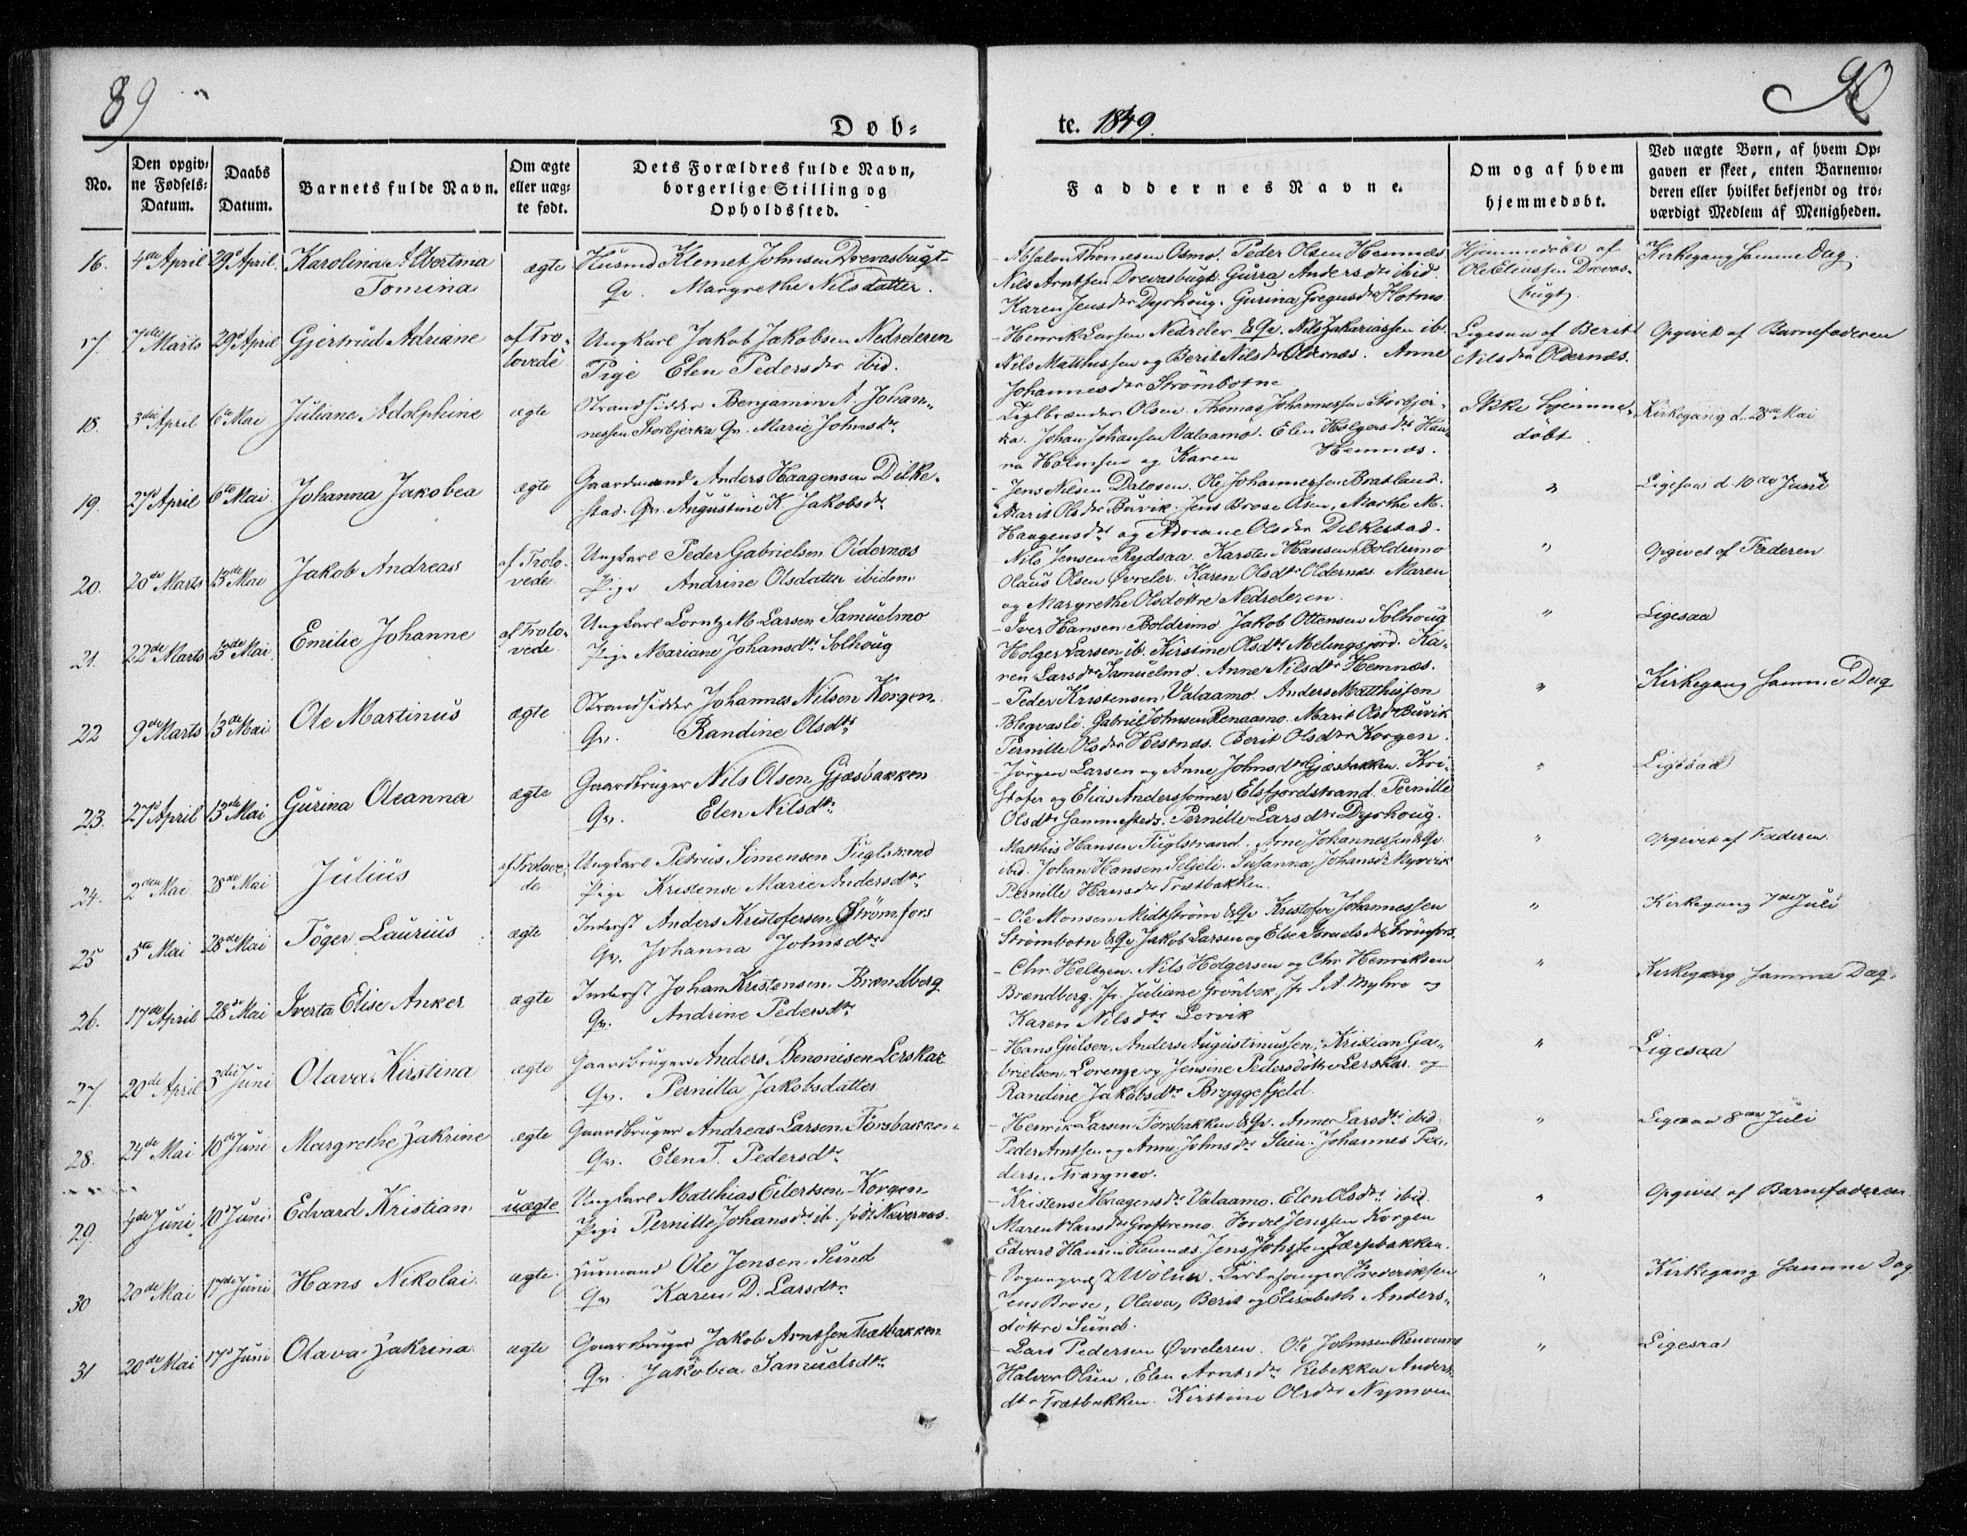 89
90
Døb-
te. 1849.
No.
Den opgiv-
ne Fødsels-
Datum.
Daabs
Datum.
Barnets fulde Navn.
Om ægte
eller uæg-
te født.
Dets Forældres fulde Navn,
borgerlige Stilling og
Opholdssted.
Faddernes Navne.
Om og af hvem
hjemmedøbt.
Ved uægte Børn, af hvem Op-
gaven er skeet, enten Barnemo-
deren eller hvilket bekjendt og tro-
værdigt Medlem af Menigheden.
16. 4de April 29de April Karolina Albertina
Tomina
ægte
Husmd Klemet Johnsen Drevasbugt
Qv. Margrethe Nilsdatter.
Absalon Thomesen Osmo. Peder Olsen Hemnæs
Nils Arntsen Drevasbugt. Gurra Andersdtr ibid.
Karen Jensdtr Dyrhoug. Gurina Gregusdtr Holmo
Hjemmedøbt af
Ole Eliassen Drevas-
bugt.
Kirkegang samme Dag.
17. 7de Marts 29de April Gjertrud Adriane
af Tro-
lovede
Ungkarl Jakob Jakobsen Nedrederen
Pige Elen Pedersdtr ibid.
Henrik Larsen Nedreler & Qv. Nils Zakariassen ib.
Nils Matthissen og Berit Nilsdtr Oldernæs. Anne
Johannesdtr Strømbotne
Ligesaa af Berit
Nilsdtr Oldernæs.
Opgivet af Barnefaderen
18. 3die April 6te Mai Juliane Adolphine
ægte
Strandsidder Benjamin A. Johan-
nessen Storbjerka Qv. Marie Johnsdtr
Olsen. Thomas Johannessen Storbjer-
ka. Johan Johansen Valaamo. Elen Holgersdtr Han-
na Holmsen og Karen Hemnæs.
Ikke hjemme-
døbt.
Kirkegang d. 28de Mai
19. 27de April 6te Mai Johanna Jakobea
ægte
Gaardmand Anders Haagensen Dilke-
stad. Qv. Augustine K Jakobsdtr
Jens Nilsen Dalosen. Ole Johannessen Bratland.
Marit Olsdtr Buvik. Jens Brose Olsen, Marthe M.
Haagensdtr og Adriane Olsdtr Dilkestad.
"
Ligesaa d. 10de Juni
20. 20de Marts 13de Mai Jakob Andreas
af Trolo-
vede
Ungkarl Peder Gabrielsen Oldernæs
Pige Andrine Olsdatter ibidem
Nils Jensen Rydsaa. Karsten Hansen Boldrmo
Olaus Olsen Øvreler. Karen Olsdtr Oldernæs. Maren
og Margrethe Olsdøttre Nedrederen.
"
Opgivet af Faderen
21. 22de Marts 13de Mai Emilie Johanne
af Trolo-
vede
Ungkarl Lorntz M. Larsen Samuelmo
Pige Mariane Johansdtr Solhoug
Iver Hansen Boldrmo Jakob Ottensen Solhoug
Holger Larsen ib. Kirstine Olsdtr Melingsfjord. Ka-
ren Larsdtr Samuelmo. Anne Nilsdtr Hemnæs.
"
Ligesaa
22 9de Marts 13de Mai Ole Martinus
ægte
Strandsidder Johannes Nilsen Korgen
Qv. Randine Olsdtr
Peder Kristensen Valaamo. Anders Matthisen
Blegvasli. Gabriel Johnsen Renaamo. Marit Olsdtr Buvik
Pernille Olsdtr Hestnæs. Berit Olsdtr Korgen.
"
Kirkegang samme Dag
23. 27de April 13de Mai Gurina Oleanna
ægte
Gaardbruger Nils Olsen Gjæsbakken
Qv. Elen Nilsdtr
Jørgen Larsen og Anne Johnsdtr Gjæsbakken. Kri-
stofer og Elias Anderssønner Elsfjordstrand. Pernille
Olsdtr sammesteds. Pernille Larsdtr Dyrhoug.
"
Ligesaa
24. 2den Mai 28de Mai Julius
af Trolove-
de
Ungkarl Petrus Simensen Fuglstrand
Pige Kristense Marie Andersdtr
Matthis Hansen Fuglstrand. Arne Johannessen & Qv.
ibid. Johan Hansen Seljeli. Susanna Johansdtr Myrvik
Pernille Hansdtr Træbakken.
"
Opgivet af Faderen.
25 5te Mai 28de Mai Tøger Laurius
ægte
Inderst Anders Kristofersen Strømfors
Qv. Johanna Johnsdtr
Ole Monsen Midtstrøm & Qv. Kristofer Johannessen
Strømbotn & Qv. Jakob Larsen og Else Israelsdtr Strømfors.
"
Kirkegang 7de Juli
26. 17de April 28de Mai Iverta Elise Anker
ægte
Inderst Johan Kristensen Brændberg
Qv. Andrine Pedersdtr
Chr. Heltzen. Nils Holgersen og Chr. Henriksen
Brændberg. Jfr. Juliane Grønbek, Jfr. J. A. Myhre og
Karen Nilsdtr Lervik
"
Kirkegang samme Dag.
27. 20de April 3die Juni Olava Kirstina
ægte
Gaardbruger Anders Benonisen Lerskar
Qv. Pernilla Jakobsdatter
Hans Gulsen. Anders Augustinussen. Kristian Ga-
brielsen. Lorenze og Jensine Pedersdøttre Lerskar. og
Randine Jakobsdtr Bryggefjeld.
"
Ligesaa
28. 24de Mai 10de Juni Margrethe Zakrine
ægte
Gaardbruger Andreas Larsen Forsbakken
Qv. Elen T. Pedersdtr
Henrik Larsen Forsbakken & Qv. Anne Larsdtr ibid.
Peder Arntsen og Anne Johnsdtr Stien. Johannes Pe-
dersen Trangnæs.
"
Ligesaa 8de Juli
29. 4de Juni 10de Juni Edvard Kristian
uægte
Ungkarl Matthias Eilertsen Korgen
Pige Pernille Johansdtr ib. født Nævernæs.
Kristense Haagensdtr Valaamo. Elen Olsdtr ibid.
Maren Hansdtr Grostremo. Fordel Jenssen Korgen
Edvard Hansen Hemnæs. Jens Johssen Jærpbakken.
"
Opgivet af Barnefaderen
30 20de Mai 17de Juni Hans Nikolai
ægte
Husmand Ole Jensen Sund
Qv. Karen D. Larsdtr
Sogneprest Wølner. Kirkesanger Frederiksen
Jens Brose, Olava, Berit og Elisabeth Anders-
døttre Sund.
"
Kirkegang samme Dag
31 20de Mai 17de Juni Olava Zakrina
ægte
Gaardbruger Jakob Arntsen Trætbakken
Qv. Jakobea Samuelsdtr
Lars Pedersen Øvrederen. Ole Johnsen Renaamo
Halvor Olsen, Elen Arntsdtr Rebekka Anders-
dtr Trætbakken. Kirstine Olsdtr Nymoen
"
Ligesaa